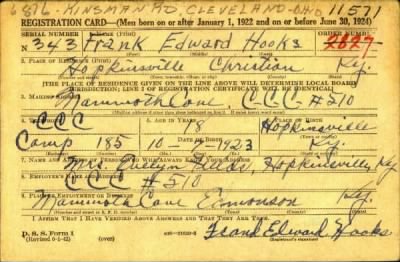 6816-HANSMAN RD. CLEVELAND-OHIO 11571
REGISTRATION CARD—(Men born on or after January 1, 1922 and on or before June 30, 1924)
SERIAL NUMBER ORDER NUMBER
343 Frank Edward Hooks 2627
2. PLACE OF RESIDENCE (Print)
Hopkinsville Christian Ky.
[THE PLACE OF RESIDENCE GIVEN ON THE LINE ABOVE WILL DETERMINE LOCAL BOARD
JURISDICTION; LINE 2 OF REGISTRATION CERTIFICATE WILL BE IDENTICAL]
3. MAILING ADDRESS
Mammoth Cave, C-C-C #510
4. TELEPHONE 5. AGE IN YEARS
CCC 18 Hopkinsville
Camp 185 10- -1923 Ky.
7. NAME AND ADDRESS OF PERSON WHO WILL ALWAYS KNOW YOUR ADDRESS
Mrs. Evelyn Fields, Hopkinsville, Ky
8. EMPLOYER'S NAME AND ADDRESS
CCC #510
9. PLACE OF EMPLOYMENT OR BUSINESS
Mammoth Cave Edmonson Ky.
I AFFIRM THAT I HAVE VERIFIED ABOVE ANSWERS AND THAT THEY ARE TRUE.
D. S. S. Form 1
Frank Edward Hooks